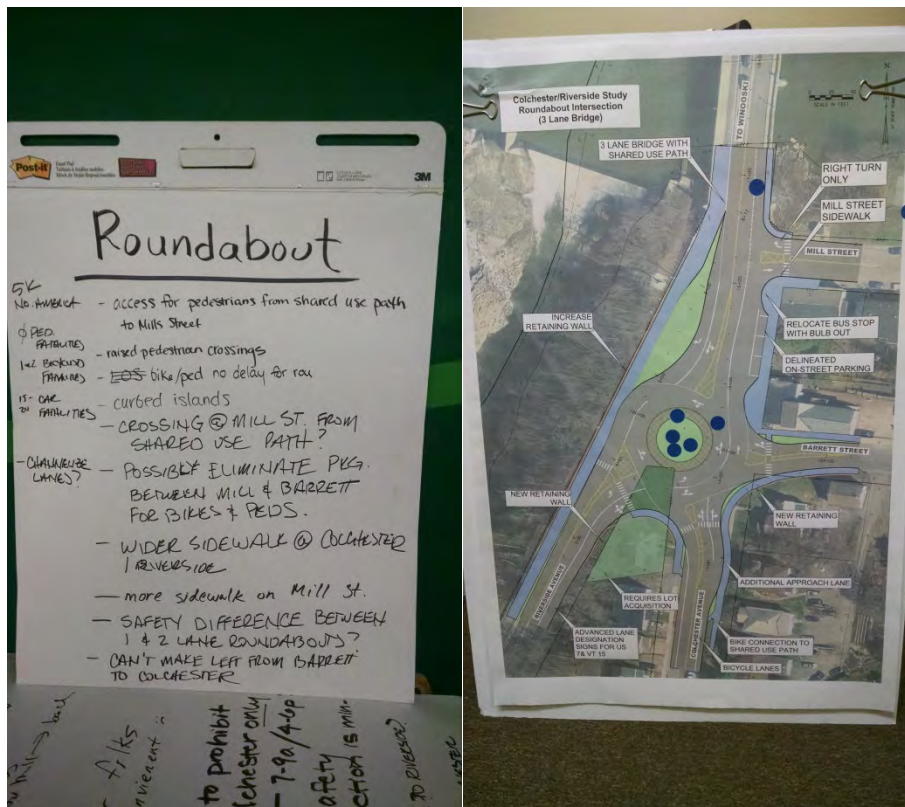 Post-it
3M
Roundabout
5K
NO. AMERICA
- access for pedestrians from shared use path
to Mills Street
∅ PED.
FATALITIES
- raised pedestrian crossings
FATALITIES
bike/ped no delay for rou
15-
CAR
FATALITIES
- curbed islands
- CROSSING @ MILL ST. FROM
SHARED USE PATH?
- CHANNELIZE
LANES?
- POSSIBLY ELIMINATE PKG.
BETWEEN MILL & BARRETT
FOR BIKES & PEDS.
- WIDER SIDEWALK @ COLCHESTER
/ RIVERSIDE
- more sidewalk on Mill St.
- SAFETY DIFFERENCE BETWEEN
1 & 2 LANE ROUNDABOUTS?
- CAN'T MAKE LEFT FROM BARRETT
TO COLCHESTER
folks
to prohibit
lchester only
- 7-9a/4-6p
afety
ction is min-
RIVERSIDE?
Colchester/Riverside Study
Roundabout Intersection
(3 Lane Bridge)
TO WINOOSKI
SCALE IN FEET
3 LANE BRIDGE WITH
SHARED USE PATH
RIGHT TURN
ONLY
MILL STREET
SIDEWALK
MILL STREET
INCREASE
RETAINING WALL
RELOCATE BUS STOP
WITH BULB OUT
DELINEATED
ON-STREET PARKING
BARRETT STREET
NEW RETAINING
WALL
NEW RETAINING
WALL
RIVERSIDE AVENUE
REQUIRES LOT
ACQUISITION
ADDITIONAL APPROACH LANE
ADVANCED LANE
DESIGNATION
SIGNS FOR US
7& VT 15
COLCHESTER AVENUE
BIKE CONNECTION TO
SHARED USE PATH
BICYCLE LANES